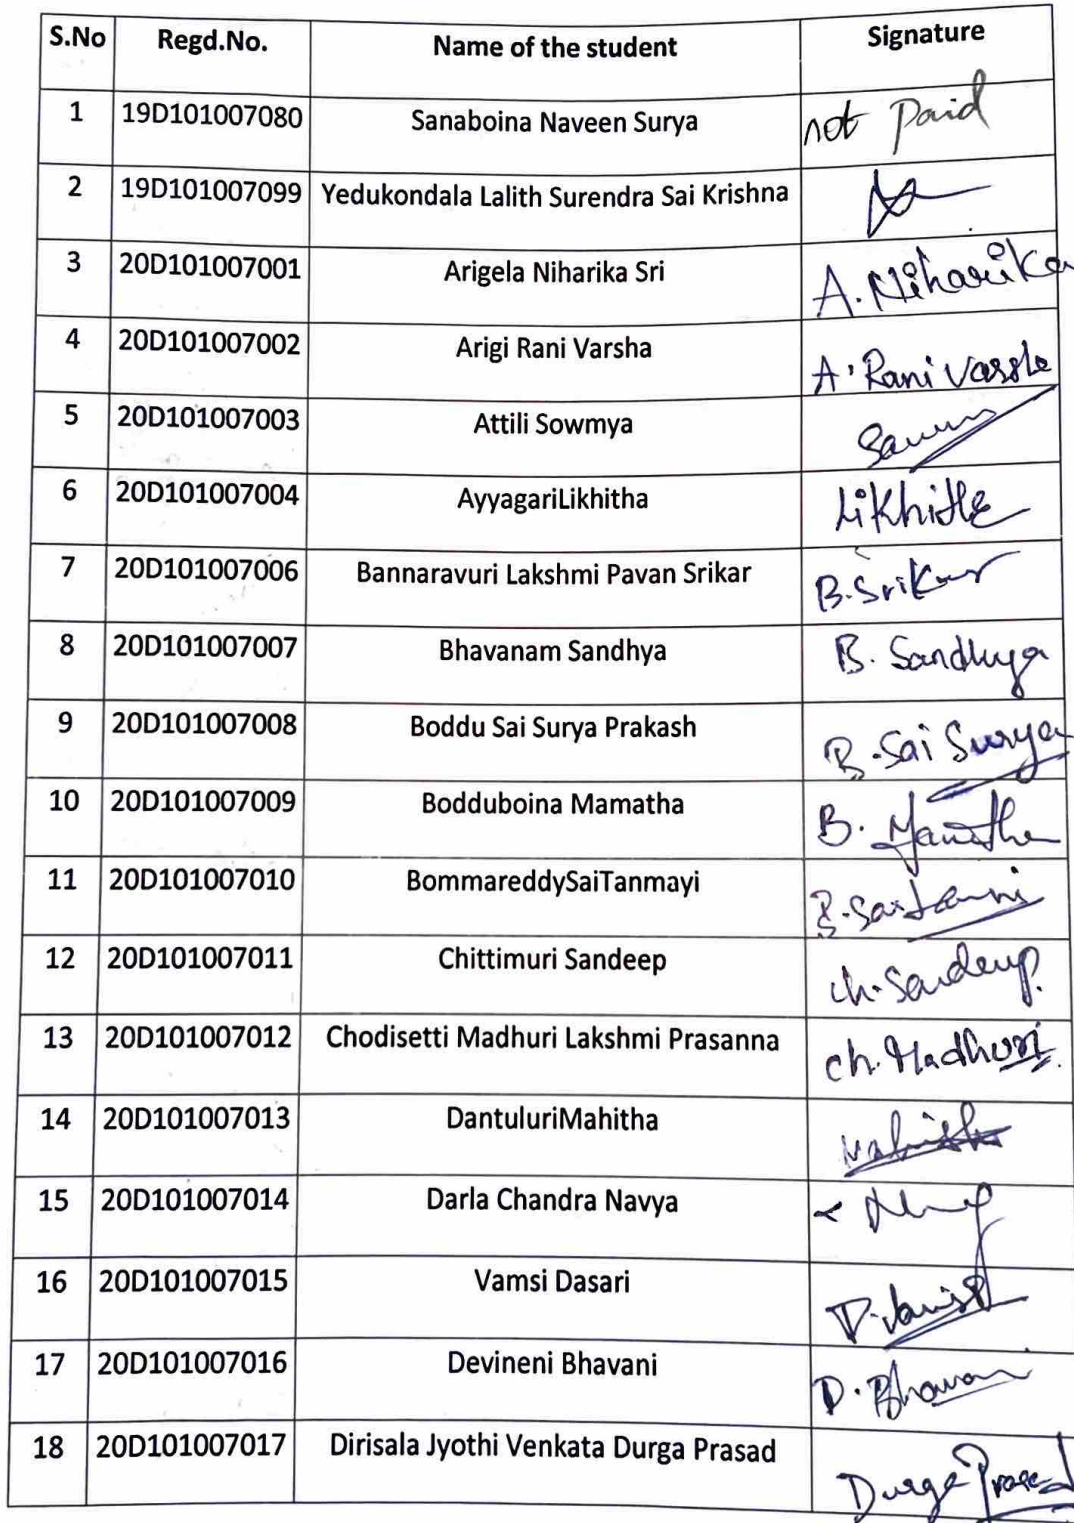 S.No Regd.No. Name of the student Signature
1 19D101007080 Sanaboina Naveen Surya not Paid
2 19D101007099 Yedukondala Lalith Surendra Sai Krishna
3 20D101007001 Arigela Niharika Sri A. Niharika
4 20D101007002 Arigi Rani Varsha A. Rani Varsha
5 20D101007003 Attili Sowmya
6 20D101007004 AyyagariLikhitha Likhitha
7 20D101007006 Bannaravuri Lakshmi Pavan Srikar B. Srikar
8 20D101007007 Bhavanam Sandhya B. Sandhya
9 20D101007008 Boddu Sai Surya Prakash B. Sai Surya
10 20D101007009 Bodduboina Mamatha B. Mamatha
11 20D101007010 BommareddySaiTanmayi
12 20D101007011 Chittimuri Sandeep ch. Sandeep.
13 20D101007012 Chodisetti Madhuri Lakshmi Prasanna ch. Madhuri
14 20D101007013 DantuluriMahitha
15 20D101007014 Darla Chandra Navya
16 20D101007015 Vamsi Dasari D. Vamsi
17 20D101007016 Devineni Bhavani D. Bhavani
18 20D101007017 Dirisala Jyothi Venkata Durga Prasad Durga Prasad